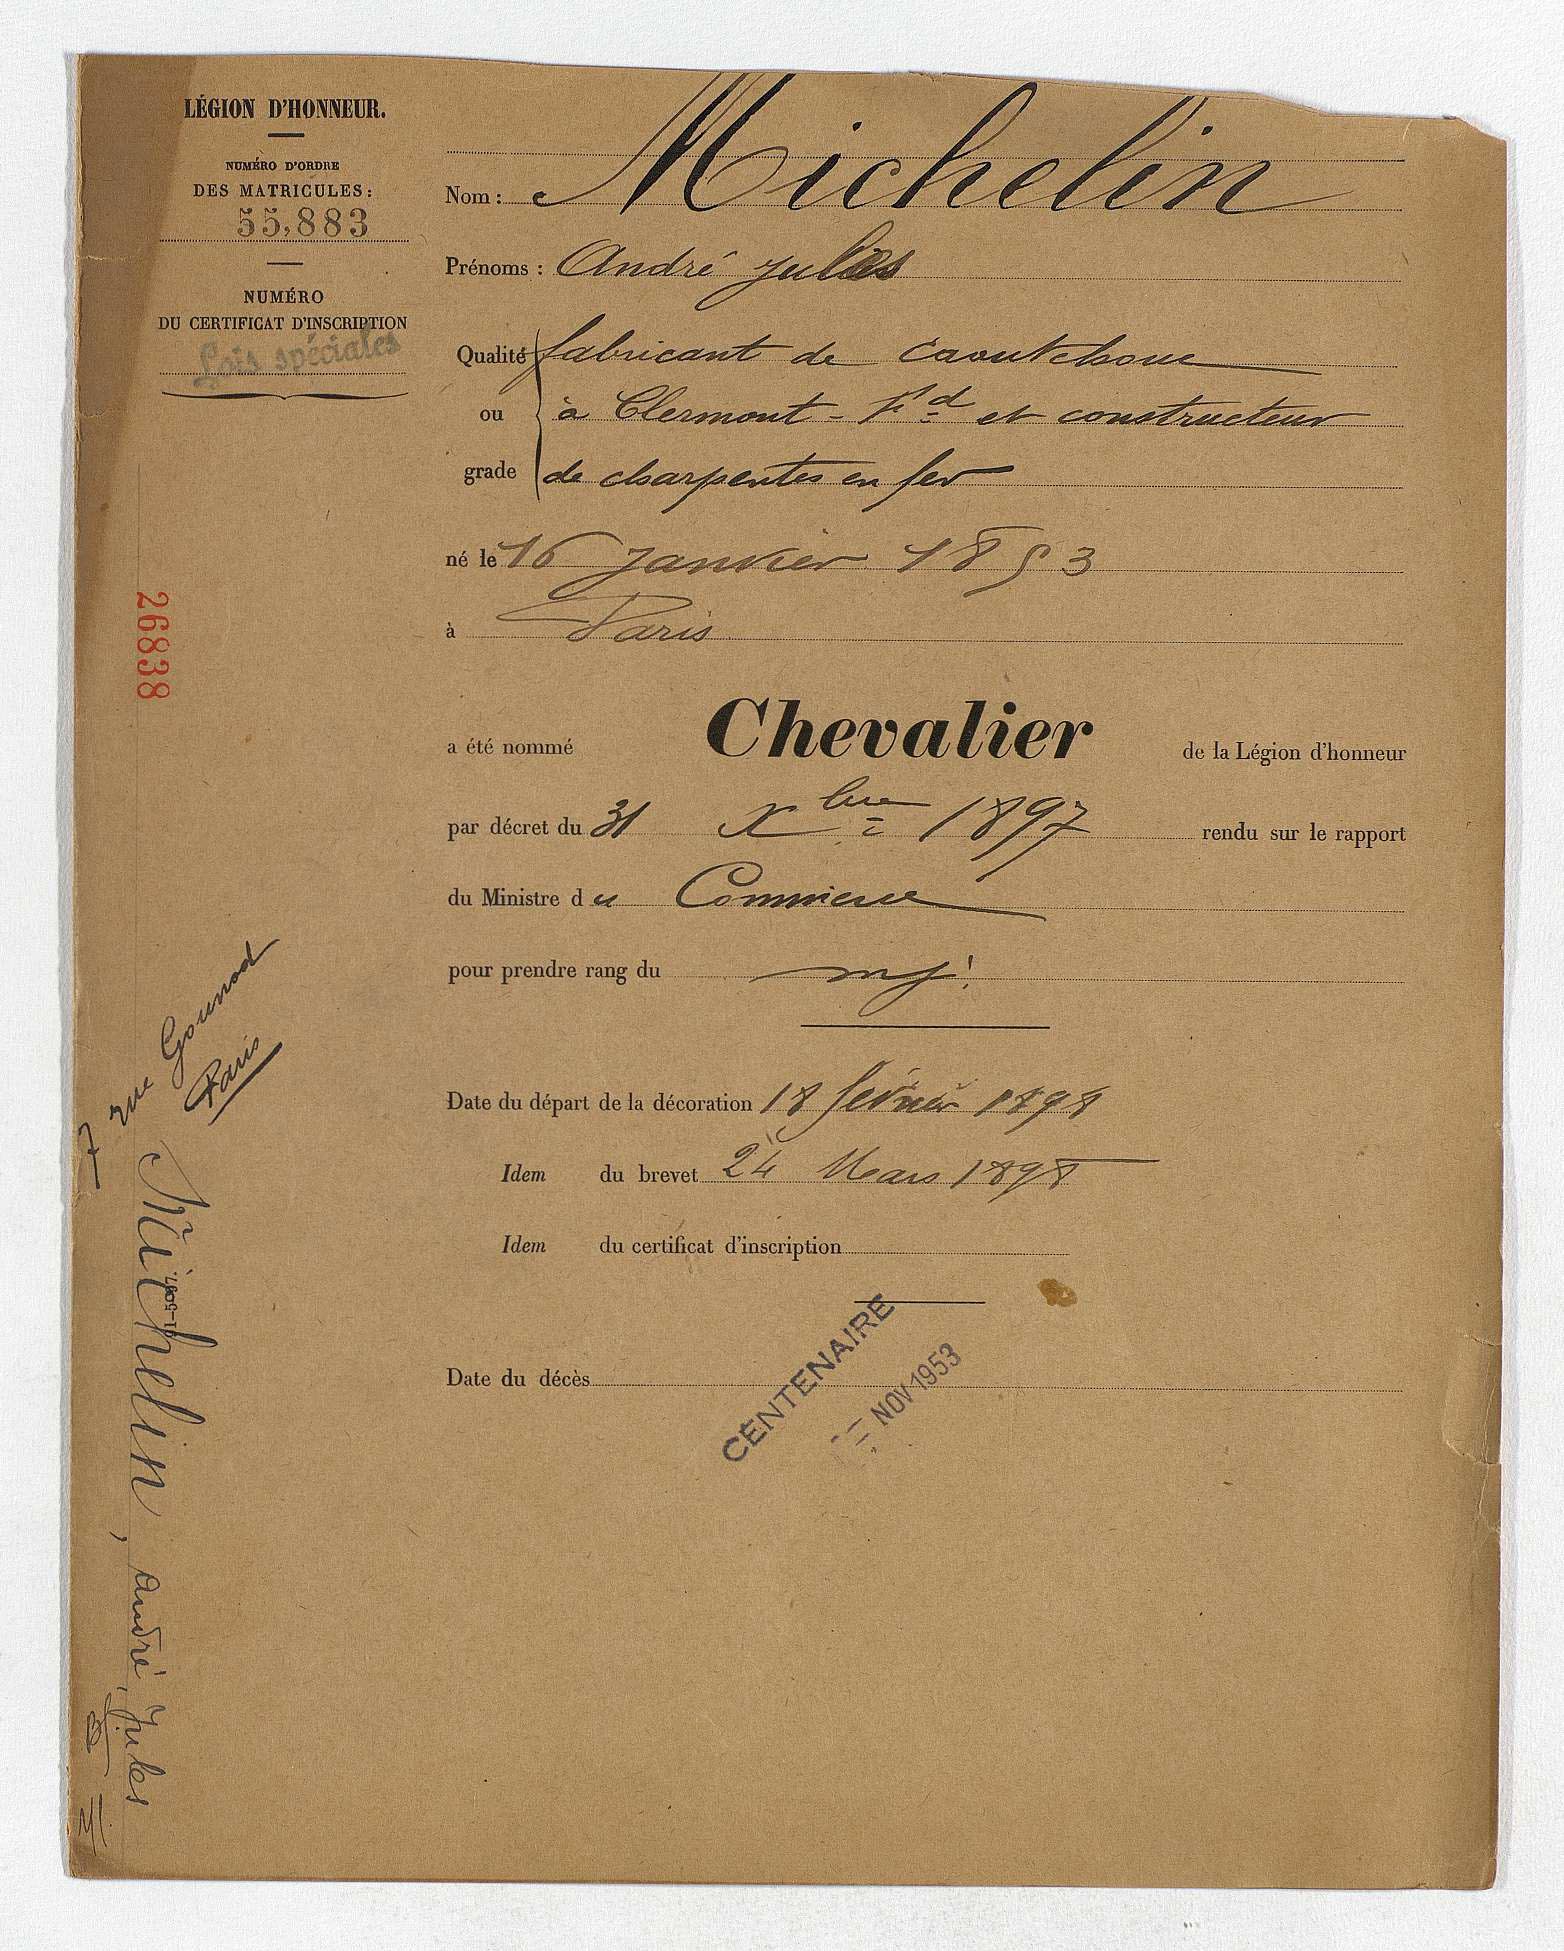 LÉGION D'HONNEUR.
NUMÉRO D'ORDRE
DES MATRICULES:
55,883
NUMÉRO
DU CERTIFICAT D'INSCRIPTION
Lois spéciales
Nom: Michelin
Prénoms: André Jules
Qualité fabricant de Caoutchouc
ou à Clermont-Fd et constructeur
grade de charpentes en fer
né le 16 Janvier 1853
à Paris
a été nommé Chevalier de la Légion d'honneur
par décret du 31 Xbre 1897 rendu sur le rapport
du Ministre du Commerce
pour prendre rang du mj.
Date du départ de la décoration 18 février 1898
Idem du brevet 24 Mars 1898
Idem du certificat d'inscription
Date du décès
CENTENAIRE
NOV 1953
26838
7 rue Gounod
Paris
Michelin, André, Jules